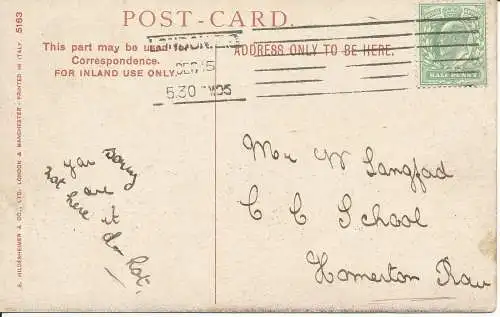 POST-CARD.
This part may be used for
Correspondence.
FOR INLAND USE ONLY.
ADDRESS ONLY TO BE HERE.
LONDON
DEC 5
5.30 05
HALF PENNY
A. HILDESHEIMER & CO., LTD. LONDON & MANCHESTER - PRINTED IN ITALY 5163
sorry
you are
not here it
do
Mr W Langfad
C C School
Homerton Row